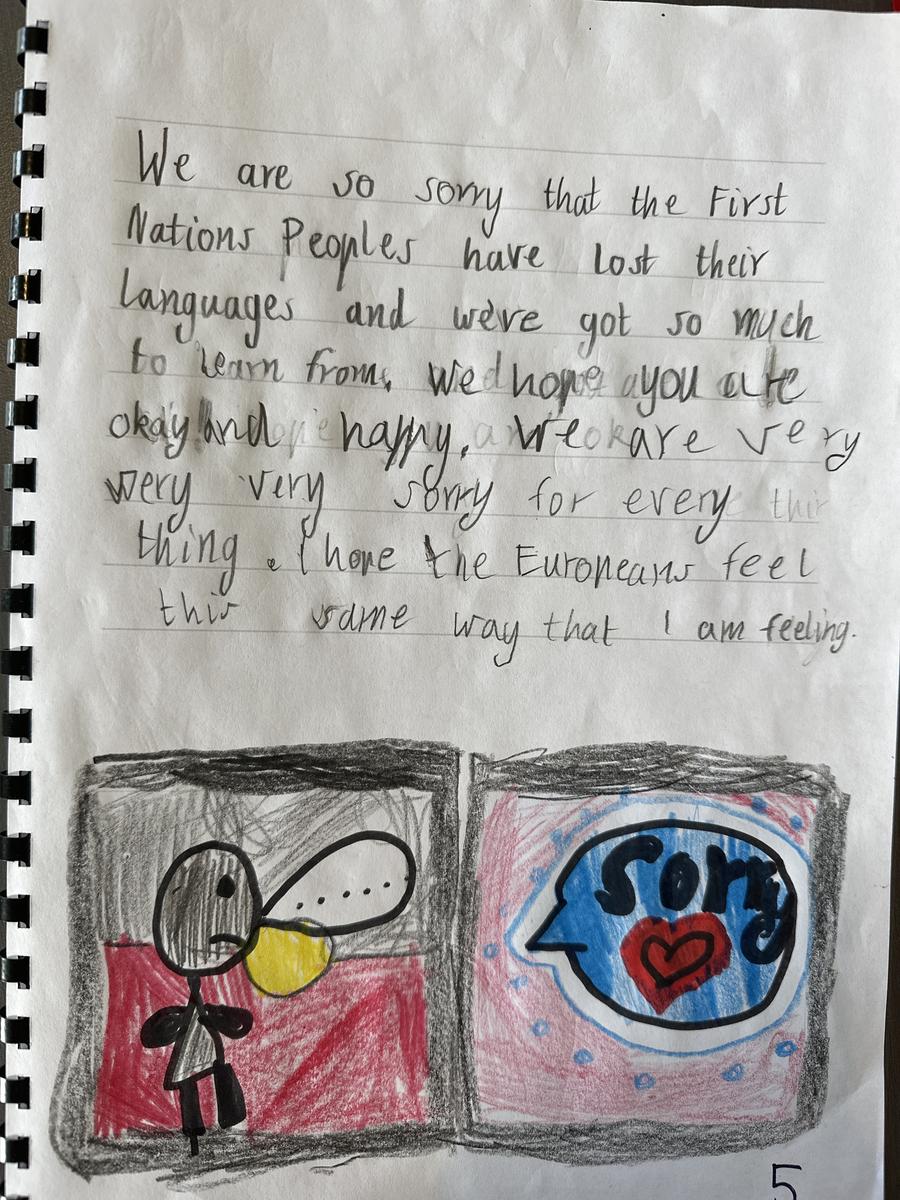 We are so sorry that the First
Nations Peoples have lost their
languages and we've got so much
to learn from. We hope you are
okay and happy. We are very
very very sorry for every
thing. I hope the Europeans feel
this same way that I am feeling.
Sorry
5